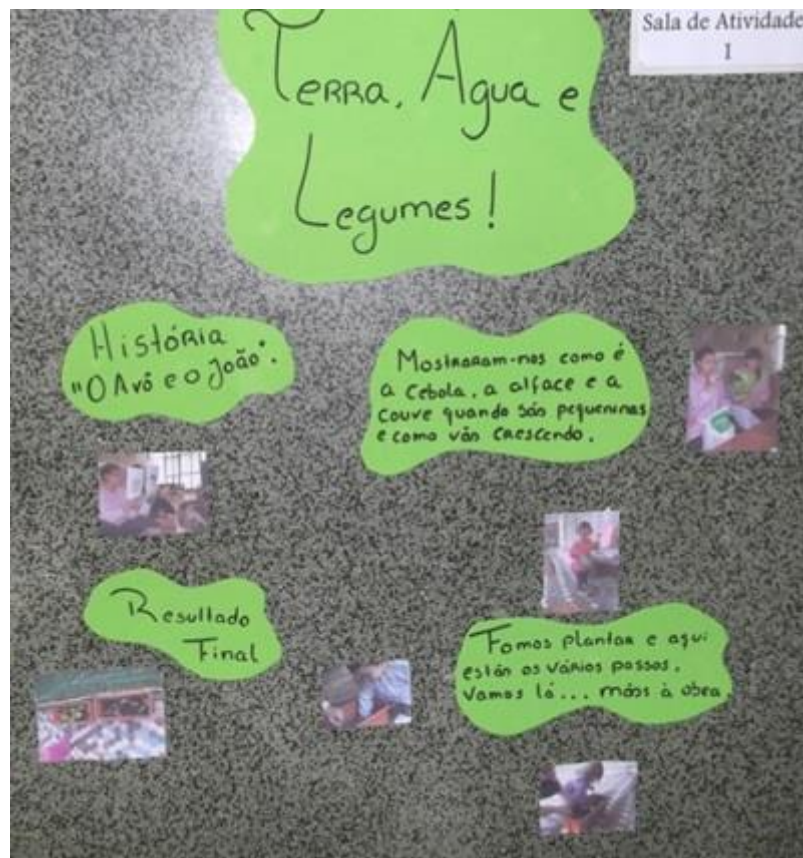 Sala de Atividade
I
Terra, Agua e
Legumes!
História
"O Avô e o João".
Mostraram-nos como é
a Cebola, a alface e a
couve quando são pequeninas
e como vão crescendo.
Resultado
Final
Fomos plantar e aqui
estão os vários passos.
Vamos lá... mãos à obra.